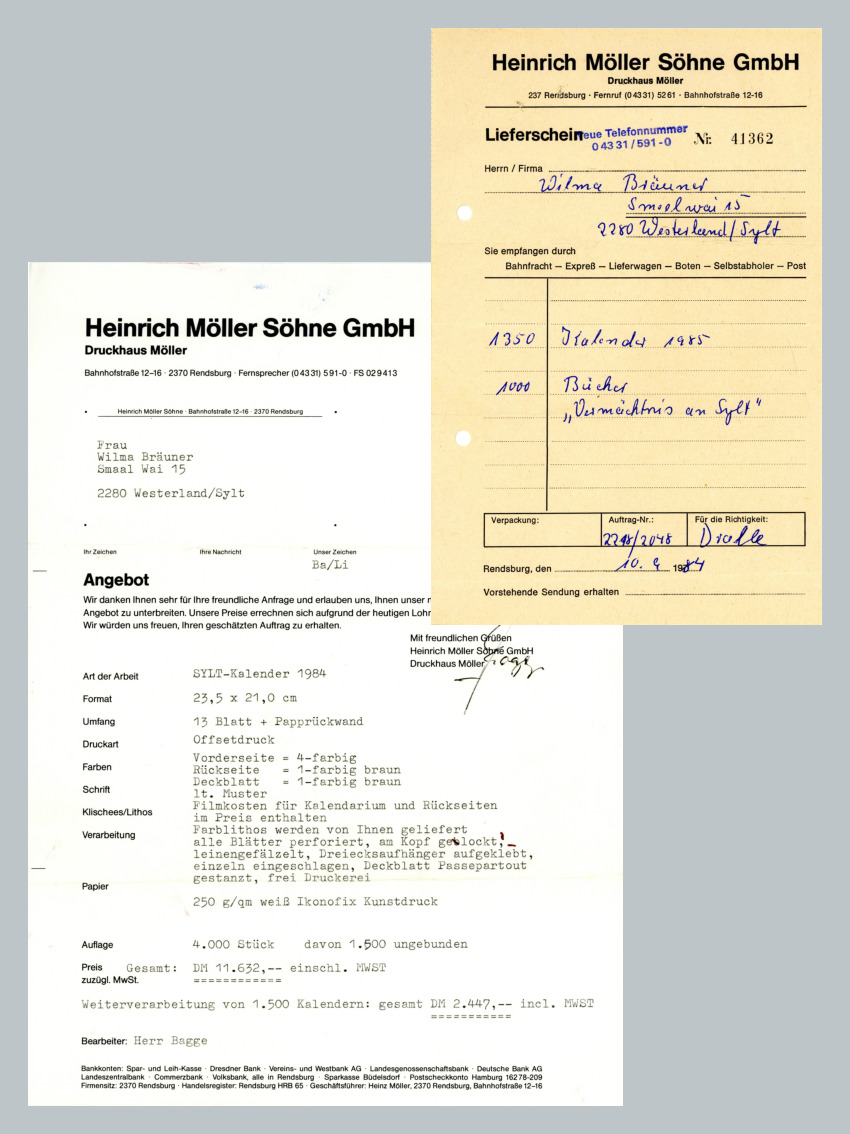 Heinrich Möller Söhne GmbH
Druckhaus Möller
237 Rendsburg · Fernruf (04331) 5261 · Bahnhofstraße 12-16
Lieferschein
neue Telefonnummer
04331/591-0
Nr. 41362
Herrn / Firma
Wilma Bräuner
Smaal wai 15
2280 Westerland/Sylt
Sie empfangen durch
Bahnfracht — Expreß — Lieferwagen — Boten — Selbstabholer — Post
1350 Kalender 1985
1000 Bücher
„Vermächtnis an Sylt"
Verpackung:
Auftrag-Nr.:
Für die Richtigkeit:
/2048
Rendsburg, den 10. 9. 1984
Vorstehende Sendung erhalten
Heinrich Möller Söhne GmbH
Druckhaus Möller
Bahnhofstraße 12–16 · 2370 Rendsburg · Fernsprecher (04331) 591-0 · FS 029413
Heinrich Möller Söhne · Bahnhofstraße 12–16 · 2370 Rendsburg
Frau
Wilma Bräuner
Smaal Wai 15
2280 Westerland/Sylt
Ihr Zeichen
Ihre Nachricht
Unser Zeichen
Ba/Li
Angebot
Wir danken Ihnen sehr für Ihre freundliche Anfrage und erlauben uns, Ihnen unser
Angebot zu unterbreiten. Unsere Preise errechnen sich aufgrund der heutigen Loh
Wir würden uns freuen, Ihren geschätzten Auftrag zu erhalten.
Mit freundlichen Grüßen
Heinrich Möller Söhne GmbH
Druckhaus Möller
Art der Arbeit SYLT-Kalender 1984
Format 23,5 x 21,0 cm
Umfang 13 Blatt + Papprückwand
Druckart Offsetdruck
Farben Vorderseite = 4-farbig
Rückseite = 1-farbig braun
Deckblatt = 1-farbig braun
Schrift lt. Muster
Klischees/Lithos Filmkosten für Kalendarium und Rückseiten
im Preis enthalten
Farblithos werden von Ihnen geliefert
Verarbeitung alle Blätter perforiert, am Kopf geblockt,
leinengefälzelt, Dreiecksaufhänger aufgeklebt,
einzeln eingeschlagen, Deckblatt Passepartout
gestanzt, frei Druckerei
Papier
250 g/qm weiß Ikonofix Kunstdruck
Auflage 4.000 Stück davon 1.500 ungebunden
Preis Gesamt: DM 11.632,-- einschl. MWST
zuzügl. MwSt. ============
Weiterverarbeitung von 1.500 Kalendern: gesamt DM 2.447,-- incl. MWST
===========
Bearbeiter: Herr Bagge
Bankkonten: Spar- und Leih-Kasse · Dresdner Bank · Vereins- und Westbank AG · Landesgenossenschaftsbank · Deutsche Bank AG
Landeszentralbank · Commerzbank · Volksbank, alle in Rendsburg · Sparkasse Büdelsdorf · Postscheckkonto Hamburg 16278-209
Firmensitz: 2370 Rendsburg · Handelsregister: Rendsburg HRB 65 · Geschäftsführer: Heinz Möller, 2370 Rendsburg, Bahnhofstraße 12–16